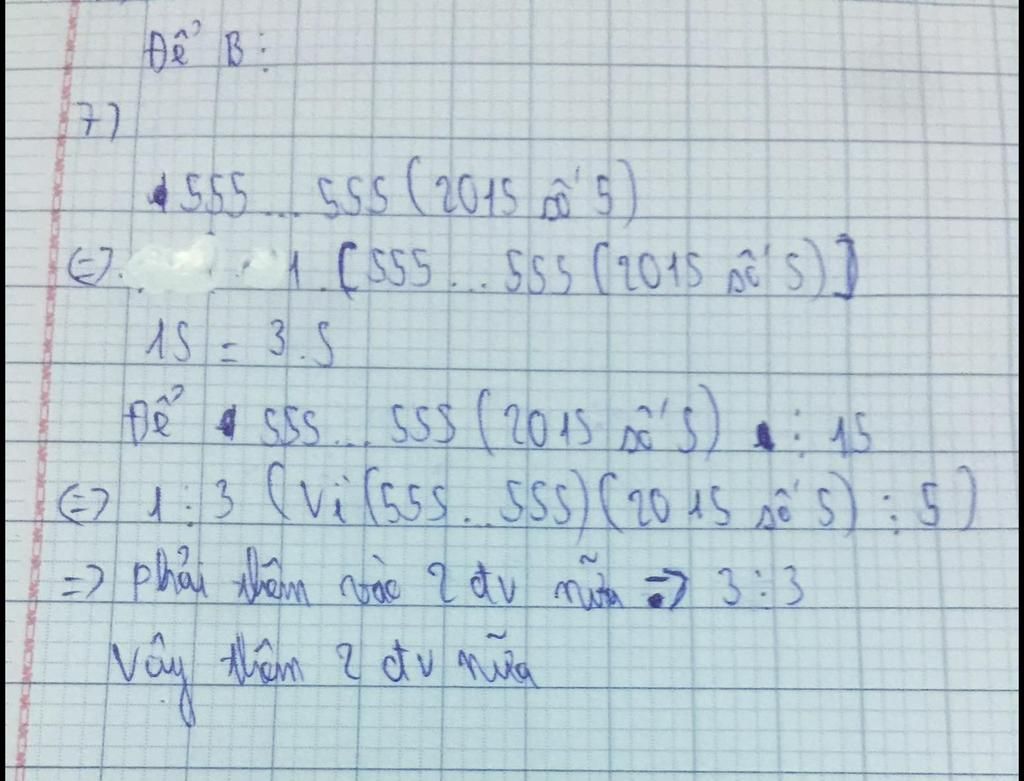 Để B:
7)
1555...555 (2015 số 5)
<=> 1.[555...555 (2015 số 5)]
15 = 3.5
Để 1555...555 (2015 số 5) : 15
<=> 1:3 (Vì (555...555)(2015 số 5) : 5)
=> phải thêm vào 2 đv nữa => 3:3
Vây thêm 2 đv nữa